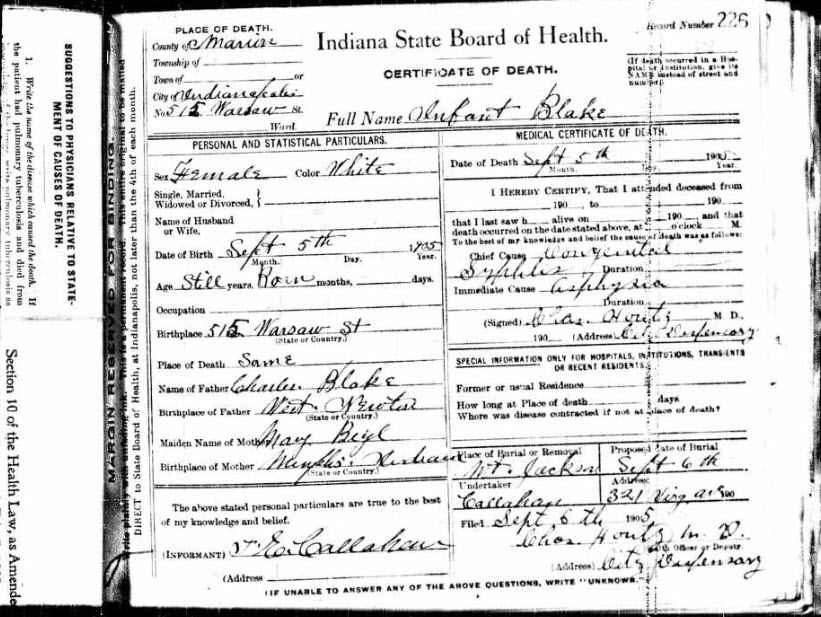 SUGGESTIONS TO PHYSICIANS RELATIVE TO STATE-
MENT OF CAUSES OF DEATH.
1. Write the name of the disease which caused the death. If
the patient had pulmonary tuberculosis and died from
Section 10 of the Health Law, as Amende
MARGIN RESERVED FOR BINDING.
DIRECT to State Board of Health, at Indianapolis, not later than the 4th of each month.
PLACE OF DEATH.
County of Marion
Township of
Town of or
City of Indianapolis
No. 515 Warsaw St.
Ward
Indiana State Board of Health.
CERTIFICATE OF DEATH.
Record Number 226
(If death occurred in a Hos-
pital or Institution, give its
NAME instead of street and
number)
Full Name Infant Blake
PERSONAL AND STATISTICAL PARTICULARS.
Sex Female Color White
Single, Married,
Widowed or Divorced,
Name of Husband
or Wife,
Date of Birth Sept 5th 1905
Month. Day. Year.
Age Still years, Born months, days.
Occupation
Birthplace 515 Warsaw St
(State or Country.)
Place of Death Same
Name of Father Charles Blake
Birthplace of Father West Newton
(State or Country.)
Maiden Name of Mother Mary
Birthplace of Mother Memphis Indiana
(State or Country.)
The above stated personal particulars are true to the best
of my knowledge and belief.
(INFORMANT) Callahan
(Address
MEDICAL CERTIFICATE OF DEATH.
Date of Death Sept 5th 1905
Month. Year.
I HEREBY CERTIFY, That I attended deceased from
190 , to 190
that I last saw h alive on 190 , and that
death occurred on the date stated above, at o'clock M.
To the best of my knowledge and belief the cause of death was as follows:
Chief Cause Congenital
Syphilis Duration
Immediate Cause Asphyxia
Duration
(Signed) Chas. Houtz M D.,
190 (Address) City Dispensary
SPECIAL INFORMATION ONLY FOR HOSPITALS, INSTITUTIONS, TRANSIENTS
OR RECENT RESIDENTS
Former or usual Residence
How long at Place of death days.
Where was disease contracted if not at place of death?
Place of Burial or Removal
Mt. Jackson
Proposed date of Burial
Sept 6th
Undertaker
Callahan
Address
321 Virg ave 190
Filed Sept 6th 1905
Chas. Houtz M. D.
Health Officer or Deputy.
(Address) City Dispensary
(IF UNABLE TO ANSWER ANY OF THE ABOVE QUESTIONS, WRITE "UNKNOWN."